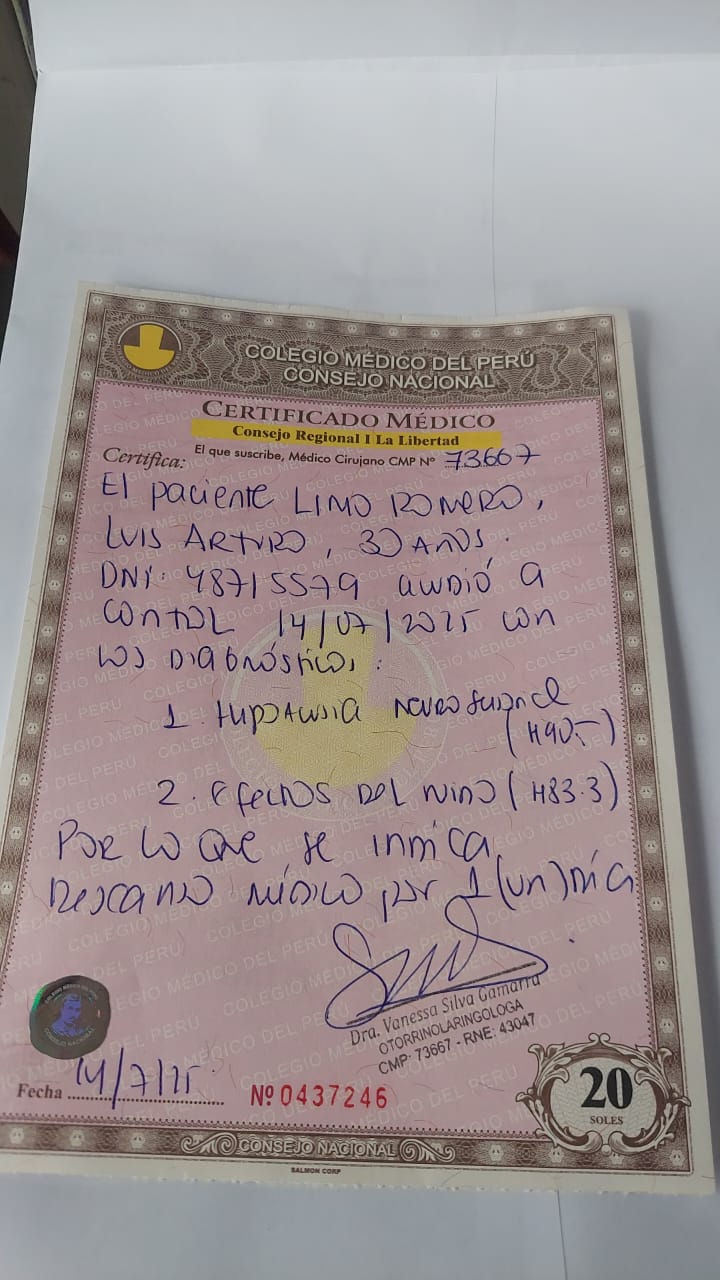 COLEGIO MÉDICO DEL PERÚ
CONSEJO NACIONAL
CERTIFICADO MÉDICO
Consejo Regional I La Libertad
Certifica: El que suscribe, Médico Cirujano CMP Nº 73667
El paciente LIMO ROMERO,
LUIS ARTURO, 30 AÑOS.
DNI: 48715579 acudió a
CONTROL 14/07/2025 con
LOS DIAGNÓSTICOS:
1. Hipoacusia neurosensorial
(H90.-)
2. Efectos DEL ruido (H83.3)
Por lo que se indica
DESCANSO MÉDICO por 1 (un) DÍA
Dra. Vanessa Silva Gamarra
OTORRINOLARINGOLOGA
CMP: 73667 - RNE: 43047
COLEGIO MÉDICO DEL PERÚ
CONSEJO NACIONAL
Fecha 14/7/25.
Nº 0437246
20
SOLES
CONSEJO NACIONAL
SALMON CORP